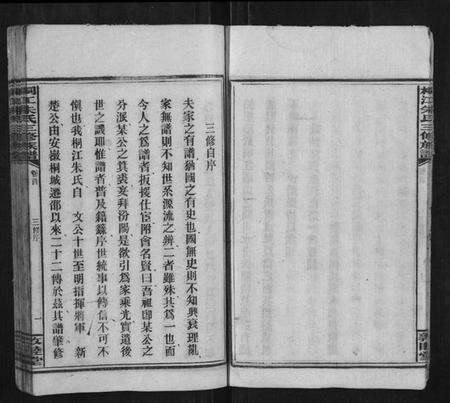 三修自序
夫家之有譜猶國之有史也國無史則不知興衰理亂
家無譜則不知世系源流之辨二者雖殊其爲一也而
今人之爲譜者扳援仕宦附會名賢曰吾祖卽某公之
分派某公之其裘妄拜汾陽是欲引爲家乘光實遺後
世之譏耶惟譜者普及籍錄序世統事以傳信不可不
愼也我桐江朱氏自 文公十世至明指揮將軍 新
楚公由安徽桐城遷邵以來二十二傳於茲其譜肇修
桐江朱氏三修族譜
卷首
三修序
一
敦睦堂
桐江朱氏三修族譜
敦睦堂